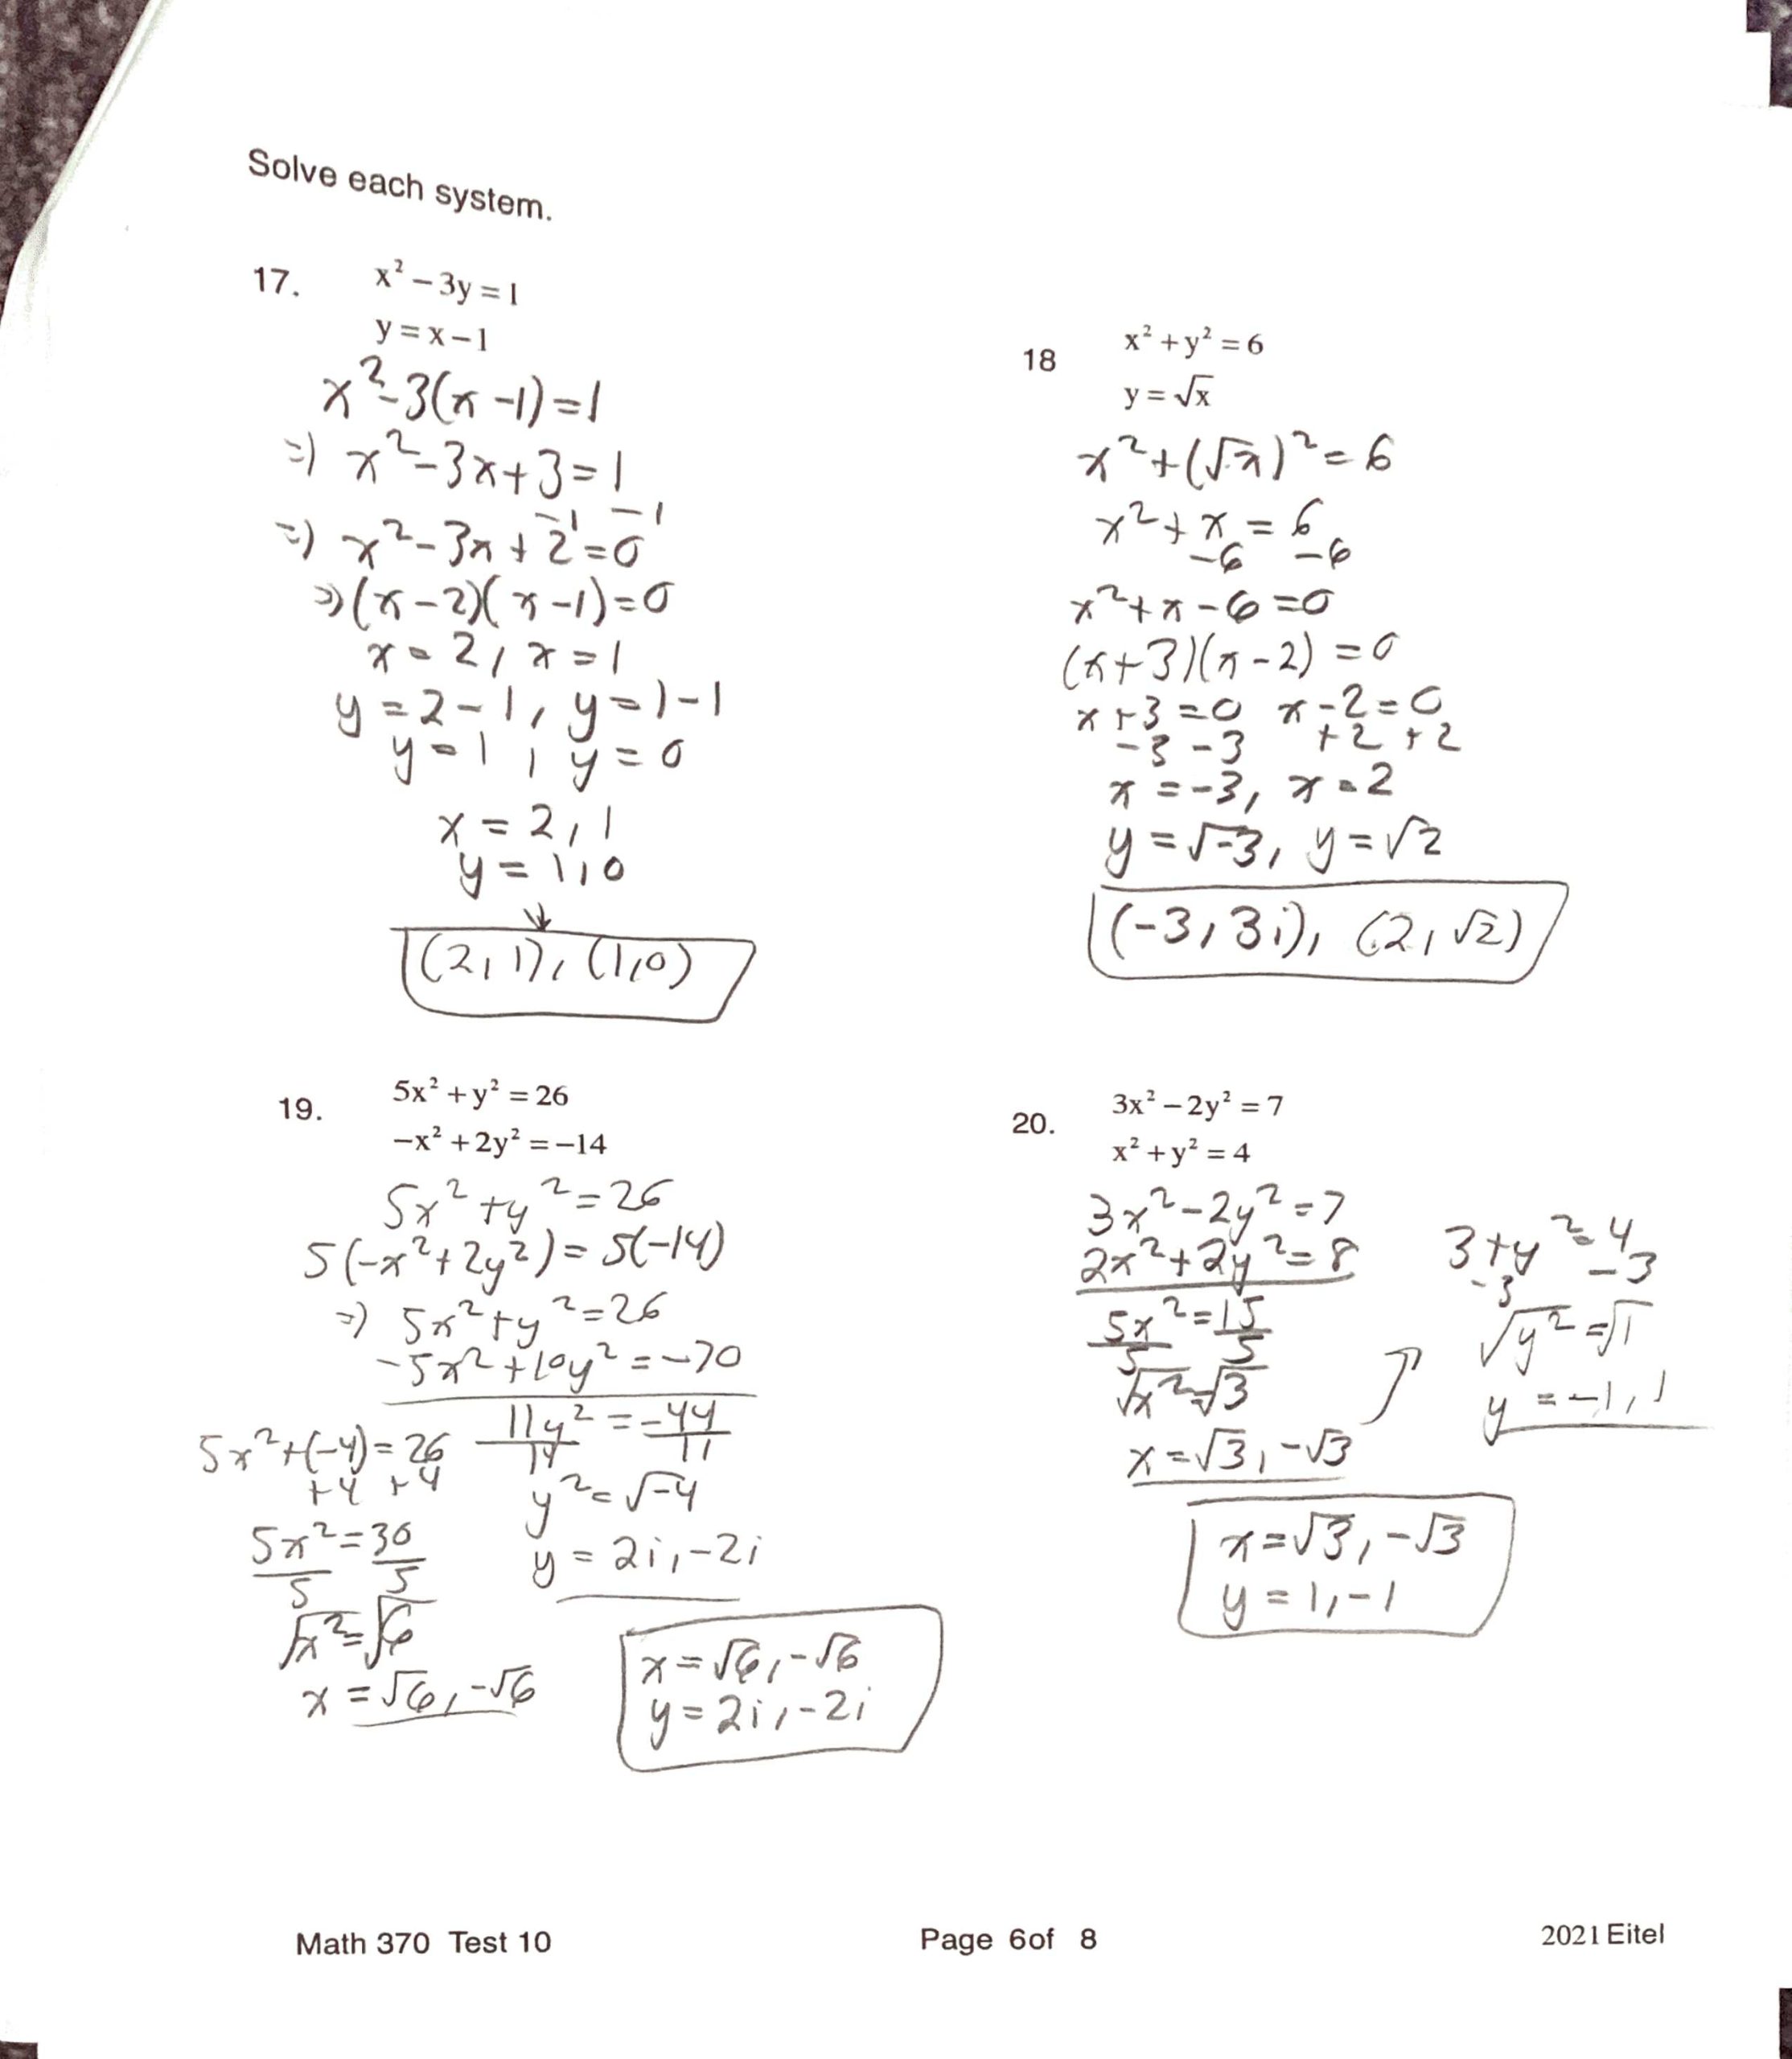 Solve each system.
17.
x² − 3y = 1
y = x − 1
x² - 3(x - 1) = 1
=) x² - 3x + 3 = 1
-1 -1
=) x² - 3x + 2 = 0
=) (x - 2)(x - 1) = 0
x = 2, x = 1
y = 2 - 1, y = 1 - 1
y = 1, y = 0
x = 2, 1
y = 1, 0
↓
(2, 1), (1, 0)
18
x² + y² = 6
y = √x
x² + (√x)² = 6
x² + x = 6
-6 -6
x² + x - 6 = 0
(x + 3)(x - 2) = 0
x + 3 = 0 x - 2 = 0
-3 -3 +2 +2
x = -3, x = 2
y = √-3, y = √2
(-3, 3i), (2, √2)
19.
5x² + y² = 26
−x² + 2y² = −14
5x² + y² = 26
5(-x² + 2y²) = 5(-14)
=) 5x² + y² = 26
-5x² + 10y² = -70
11y² = -44
11 11
y² = √-4
y = 2i, -2i
5x² + (-4) = 26
+4 +4
5x² = 30
5 5
√x² = √6
x = √6, -√6
x = √6, -√6
y = 2i, -2i
20.
3x² − 2y² = 7
x² + y² = 4
3x² - 2y² = 7
2x² + 2y² = 8
5x² = 15
5 5
√x² = √3
x = √3, -√3
3 + y² = 4
-3 -3
√y² = √1
y = -1, 1
x = √3, -√3
y = 1, -1
Math 370 Test 10
Page 6of 8
2021 Eitel